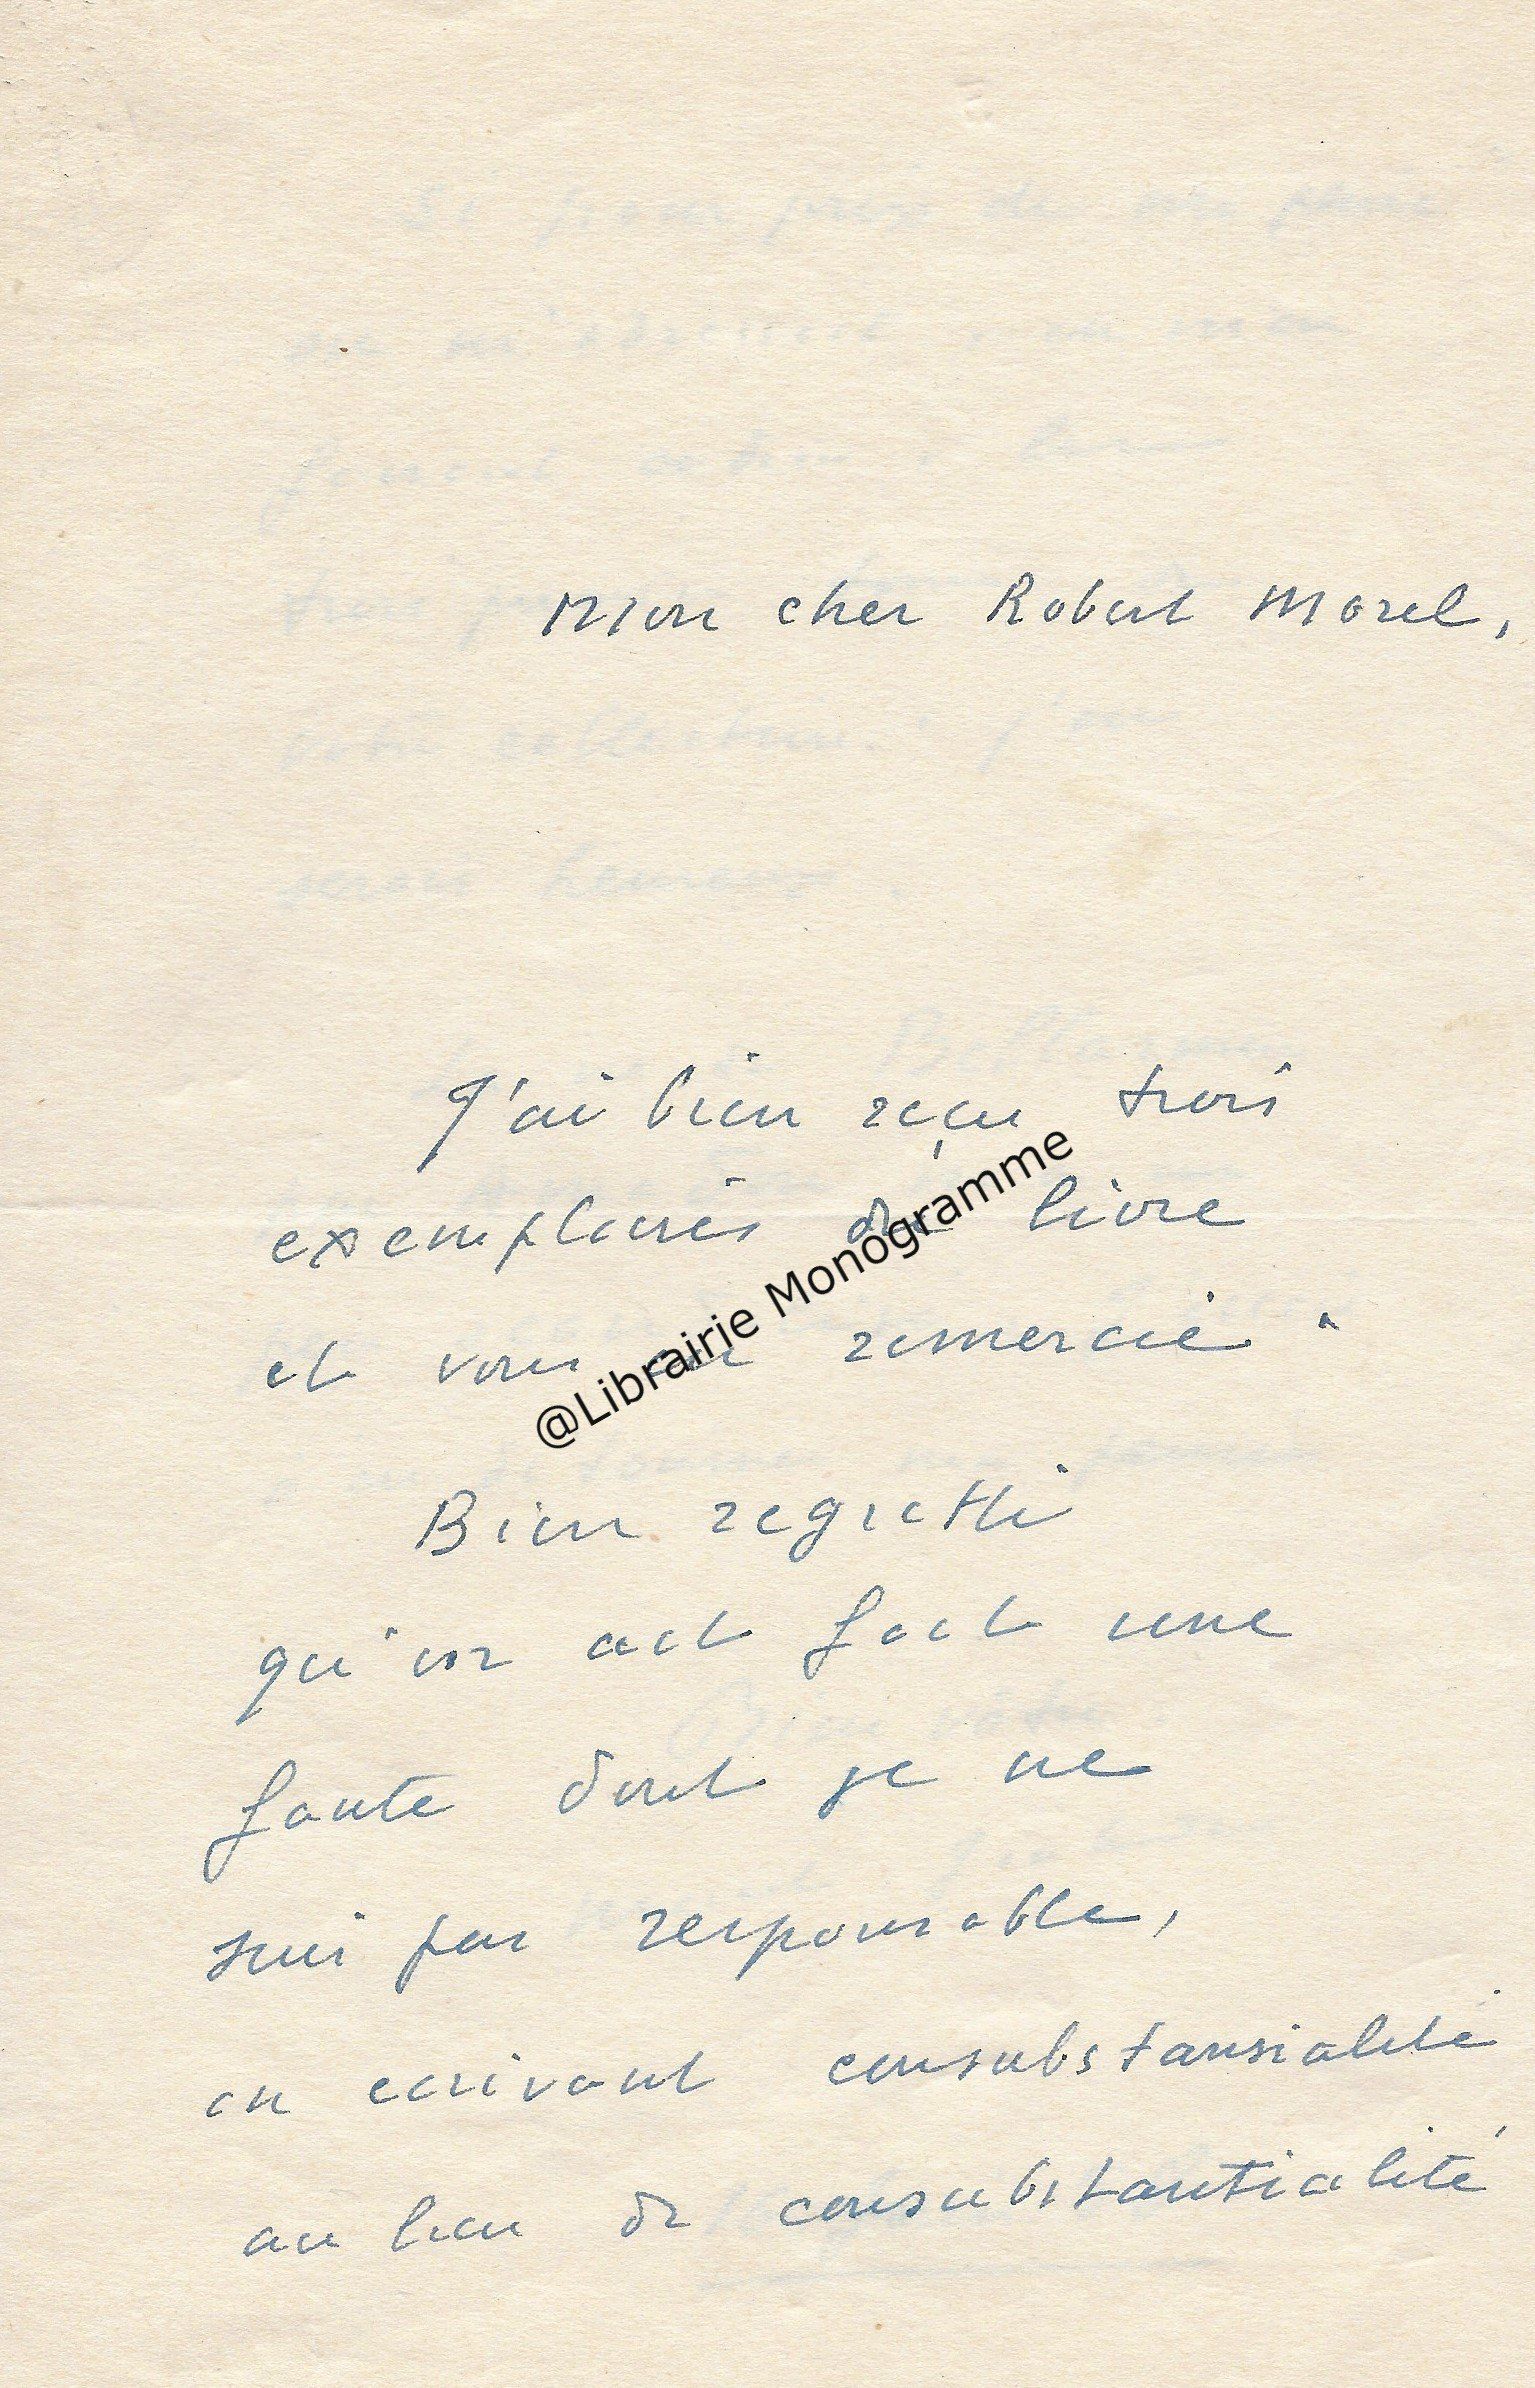 Mon cher Robert Morel,
J'ai bien reçu trois
exemplaires du livre
et vous en remercie.
Bien regretté
qu'on ait fait une
faute dont je ne
suis pas responsable,
en écrivant consubstansialité
au lieu de consubstantialité
@Librairie Monogramme